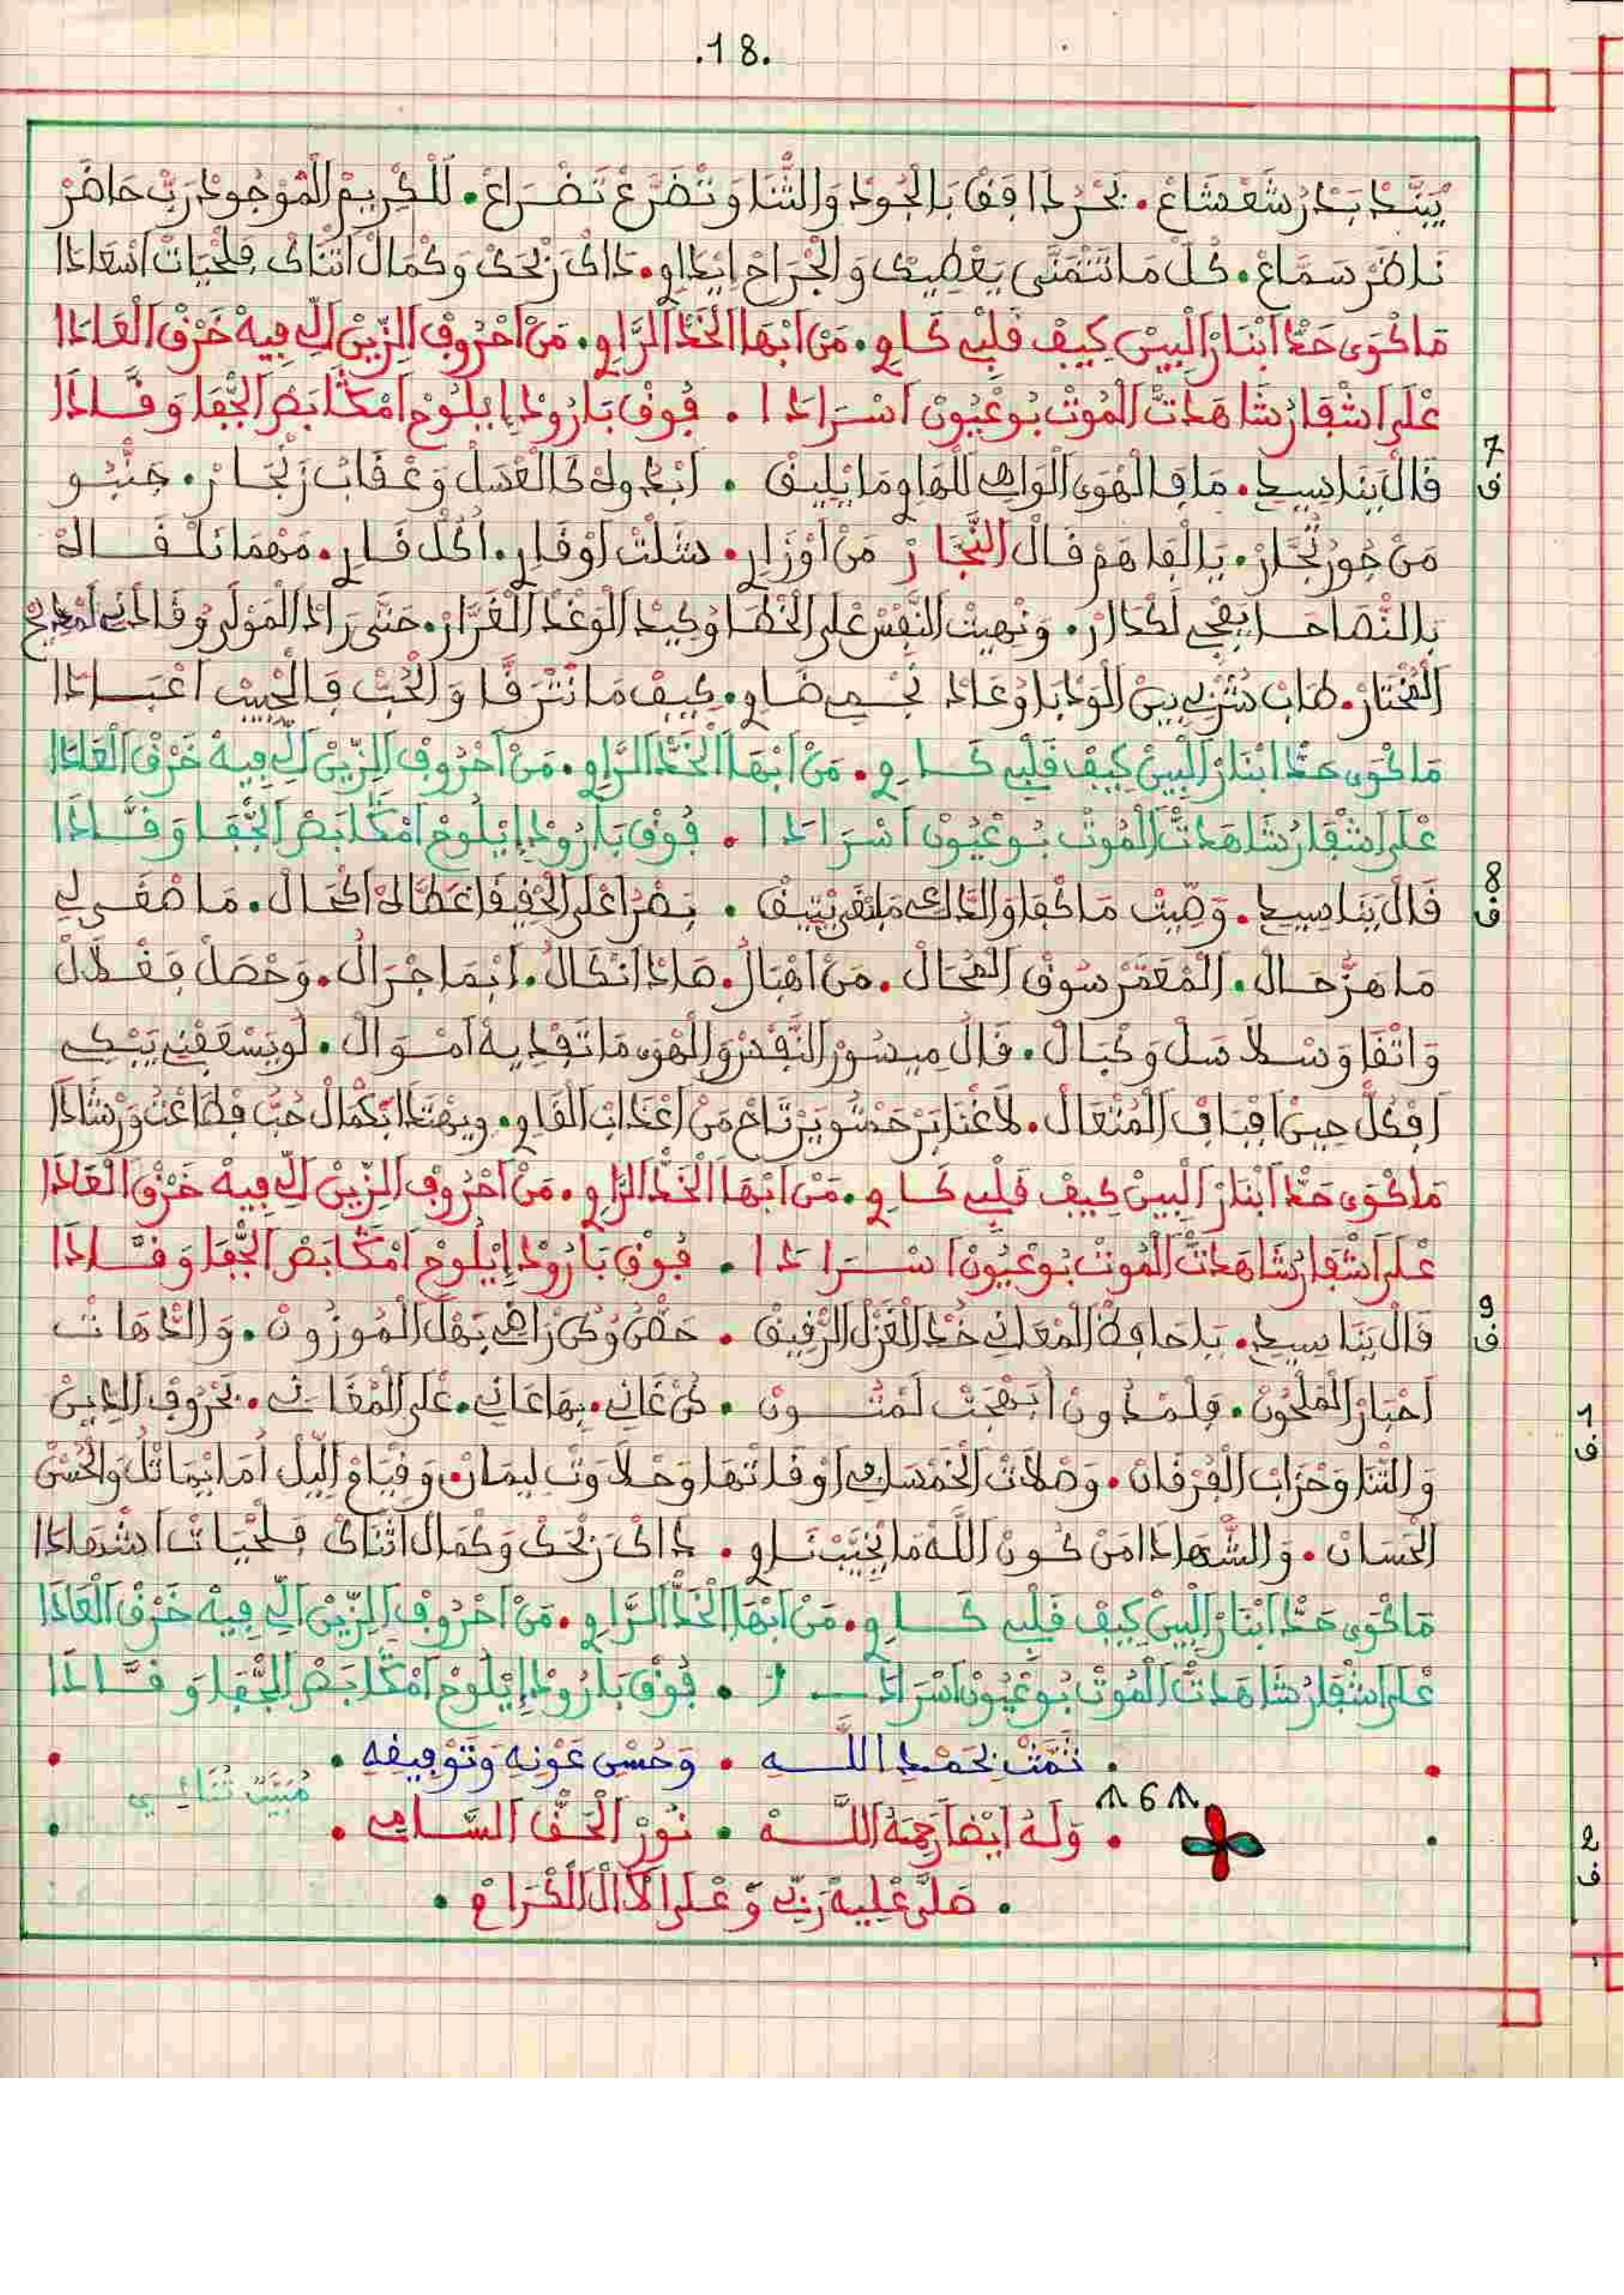 .18.
يَنْبَدْ بَدْرْ شَعْشَاعْ • بَالْجُودْ وَالثَّنَا وَتْضَرَّعْ تَضْرَاعْ • لَلْكْرِيمْ الْمَوْجُودْ رَبِّ حَاضَرْ
نَاضَرْ سَمَّاعْ • كُلْ مَا تَتْمَنَّى يَعْطِيكْ وَالْجْرَاحْ ايْدَاوِ • دَاكْ رَبْحَكْ وَكْمَالْ اثْنَاكْ فِلْحْيَاتْ اسْعَادَا
مَا كْوَى حَدْ ابْنَارْ الْبِينْ كِيفْ قَلْبِ كَاوِ • مَنْ ابْهَا الْخَدْ الرَّاوِ • مَنْ احْرُوفْ الزِّينْ الِّ فِيهْ خَرْقْ الْعَادَا
عْلَى اشْفَارْ شَاهَدْتْ الْمُوتْ بُوعْيُونْ اسْرَادَا • فُوقْ بَارُودْ إِيلُوحْ امْكَابَضْ الْجْفَا وَقَّادَا
7
ف
قَالْ يَنَا سِيدِ • مَا فَالْهْوَى الْوَاهِي لَلْهَاوِي مَا يْلِيقْ • وَعْقَابْ زَنْجَارْ • جَنْبُو
مَنْ جُورْ تُجَّارْ • يَالْفَاهَمْ قَالْ النَّجَّارْ مَنْ اوْزَارِ • شَلَّتْ اوْقَارِ • مَهْمَا نَلْقَـاهْ
بِالنّْصَاحَا يِفْجِي لَكْدَارْ • وَنْهِيتْ النَّفْسْ عْلَى الْخْطَا وُكِيدْ الْوَغْدْ الْغَرَّارْ • حَتَّى رَادْ الْمَوْلَى وُقَادْنِي لَمْدِيحْ
الْمُخْتَارْ • طَابْ شُرْبِي بِينْ الْوَدْبَا وُعَادْ نَجْمِي ضَاوِ • كِيفْ مَا نَتْرَقَّا وَالْحُبّْ فَالْحْبِيبْ اعْبَادَا
مَا كْوَى حَدْ ابْنَارْ الْبِينْ كِيفْ قَلْبِ كَـاوِ • مَنْ ابْهَا الْخَدْ الرَّاوِ • مَنْ احْرُوفْ الزِّينْ الِّ فِيهْ خَرْقْ الْعَادَا
عْلَى اشْفَارْ شَاهَدْتْ الْمُوتْ بُوعْيُونْ اسْرَادَا • فُوقْ بَارُودْ إِيلُوحْ امْكَابَضْ الْجْفَا وَقَّادَا
8
ف
قَالْ يَنَا سِيدِ • وَصِّيتْ مَا كْفَا وَالدَّاكِي • نَضْرَا عْلَى الْحْقِيقَا عْطَاهْ الْحَـالْ • مَا صْغَى لِي
مَا هَزّْ حَـالْ • الْمْعَمَّرْ سُوقْ الْمُحَالْ • مَنْ اهْبَالْ • هَادَا انْكَالْ • ابْمَا جْرَالْ • وَحْصَلْ فَغْلَالْ
وَاتْقَاوَ سْلَاسَلْ وَكْبَالْ • قَالْ مِيسُورْ النَّفْدَرْ وَالْهْوَى مَا تَفْدِيهْ امْـوَالْ • لُويَسْعَفْنِي يَبْكِي
افْكُلّْ حِينْ افْبَابْ الْمُتْعَالْ • لَاغْنَا بَرْحَمْتُو يَرْتَاحْ مَنْ اعْدَابْ الْقَاوِ • وِيهْتْدَا بَكْمَالْ حُبّْ فْطَاعْتُ وَرْشَادَا
مَا كْوَى حَدْ ابْنَارْ الْبِينْ كِيفْ قَلْبِ كَـاوِ • مَنْ ابْهَا الْخَدْ الرَّاوِ • مَنْ احْرُوفْ الزِّينْ الِّ فِيهْ خَرْقْ الْعَادَا
عْلَى اشْفَارْ شَاهَدْتْ الْمُوتْ بُوعْيُونْ اسْـرَادَا • فُوقْ بَارُودْ إِيلُوحْ امْكَابَضْ الْجْفَا وَقَّادَا
9
ف
قَالْ يَنَا سِيدِ • يَا حَافَظْ الْمْعَانِي خُدْ الْغْزَلْ الرّْقِيقْ • حَقّْقْ وُكُنْ رَاهِي بَهْلْ الْمُوزُونْ • وَالدَّهَاتْ
احْبَارْ الْمَلْحُونْ • فِلَمْدُونْ ابْهَجْتْ لَمْتُـونْ • كُنْ غَانِي • بِهَا عَانِي • عْلَى الْمْغَانِي • بَحْرُوفْ الدِّينْ
وَالثّْنَا وَحْزَابْ الْفُرْقَانْ • وَصْلَاتْ الْخَمْسَا فِي اوْقَاتْهَا وَحْلَاوَتْ لِيمَانْ • وَقْيَامْ اللِّيلْ امَا يْمَاتْلُ وَالْحُسْنْ
الْحَسَانْ • وَالشّْهَادَا مَنْ كُونْ اللَّهْ مَا يْخَيَّبْ نَـاوِ • دَاكْ رَبْحَكْ وَكْمَالْ اثْنَاكْ فِلْحْيَاتْ اشْهَادَا
1
ف
مَا كْوَى حَدْ ابْنَارْ الْبِينْ كِيفْ قَلْبِ كَـاوِ • مَنْ ابْهَا الْخَدْ الرَّاوِ • مَنْ احْرُوفْ الزِّينْ الِّ فِيهْ خَرْقْ الْعَادَا
عْلَى اشْفَارْ شَاهَدْتْ الْمُوتْ بُوعْيُونْ اسْرَادَا • فُوقْ بَارُودْ إِيلُوحْ امْكَابَضْ الْجْفَا وَقَّادَا
• تَمَّتْ بِحَمْدِ اللَّـهِ • وَحُسْنِ عَوْنِهِ وَتَوْفِيقِهِ •
مُبَيَّتْ ثُنَائِي
6
• وَلَهُ أَيْضًا رَحِمَهُ اللَّـهْ • نُورْ الْحَقّْ السَّـامِي •
2
ف
• صَلَّى عْلِيهْ رَبِّي وَعْلَى الْآلْ الْكْرَامْ •